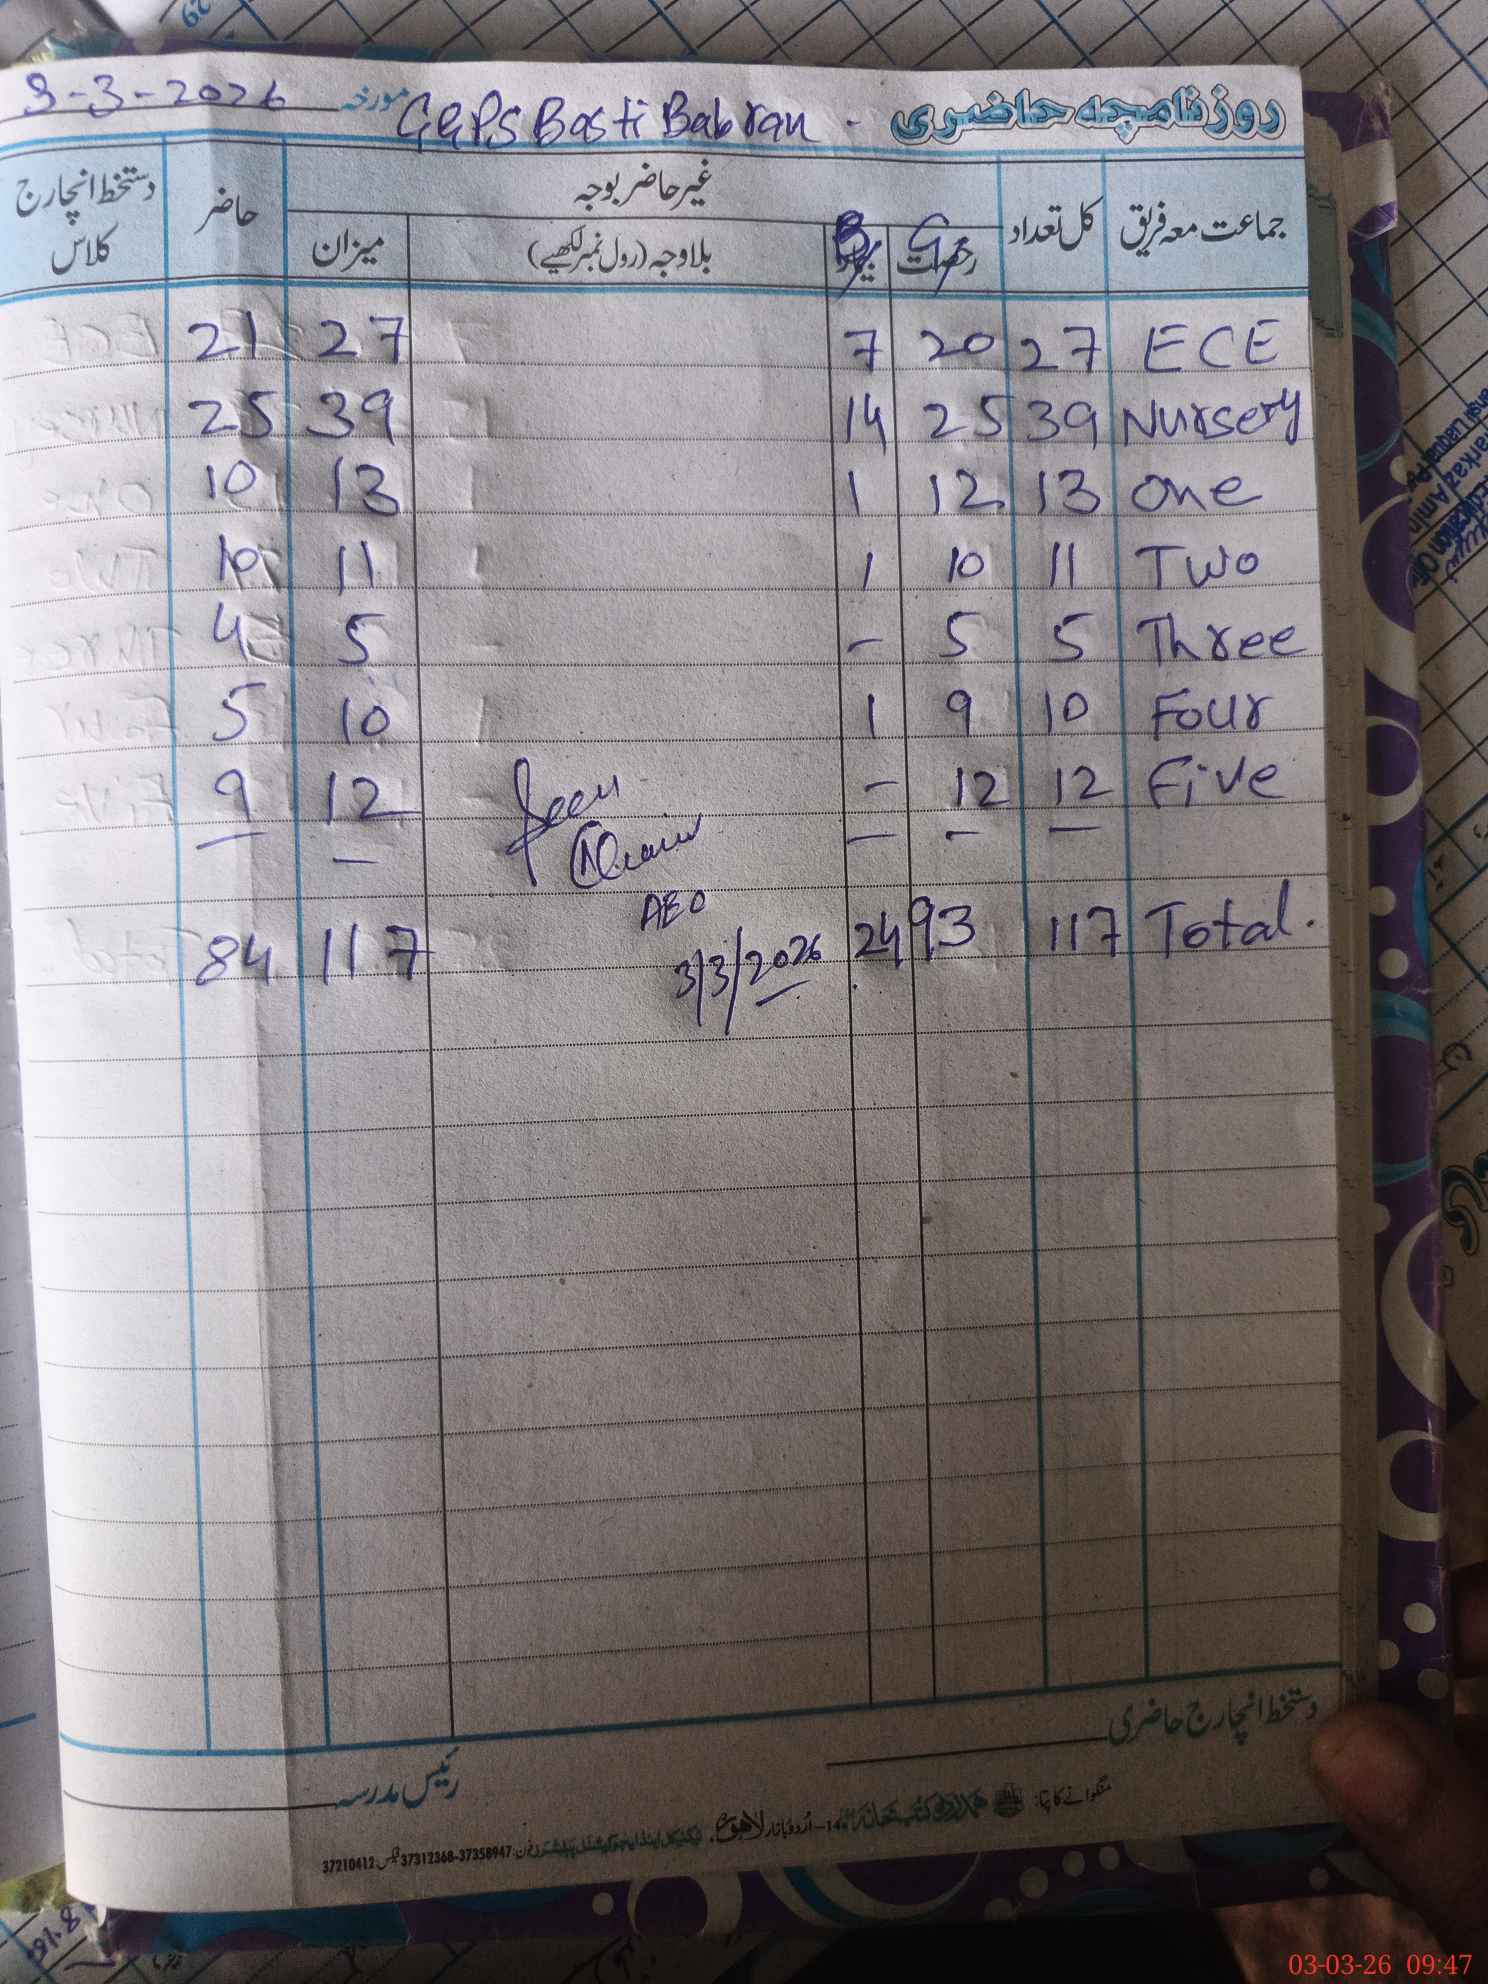 روزنامچہ حاضری GGPS Basti Babran - مورخہ 3-3-2026
جماعت معہ فریق کل تعداد غیر حاضر بوجہ حاضر دستخط انچارج کلاس
رخصت G بیمار B بلاوجہ (رول نمبر لکھیے) میزان
ECE 27 20 7 27 21
Nursery 39 25 14 39 25
One 13 12 1 13 10
Two 11 10 1 11 10
Three 5 5 - 5 4
Four 10 9 1 10 5
Five 12 12 - 12 9
Seen
AEO
Total. 117 93 24 117 84
3/3/2026
دستخط انچارج حاضری
رئیس مدرسہ
منگوانے کا پتا: ہمدرد کتب خانہ 14-اردو بازار لاہور
فون: 37358947-37312368 فیکس: 37210412
03-03-26 09:47